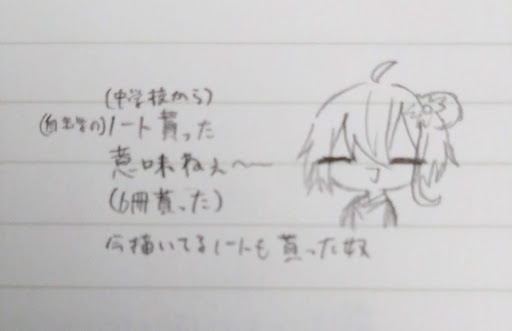 (中学校から)
(自主学の)ノート貰った
意味ねぇ〜
(6冊貰った)
今描いてるノートも貰った奴